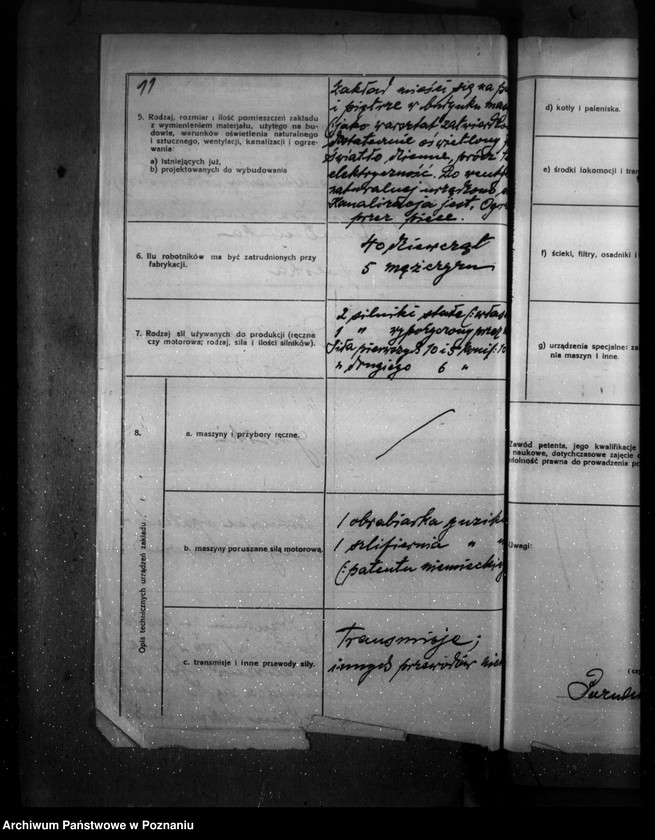 11
5. Rodzaj, rozmiar i ilość pomieszczeń zakładu
z wymienieniem materjału, użytego na bu-
dowie, warunków oświetlenia naturalnego
i sztucznego, wentylacji, kanalizacji i ogrze-
wania:
a) istniejących już,
b) projektowanych do wybudowania
Zakład mieści się na
i piętrze w budynku
(jako warsztat
dostatecznie oświetlony
światło dzienne, prócz
elektryczność. Do
naturalnej urządzono
Kanalizacja jest.
przez piece.
6. Ilu robotników ma być zatrudnionych przy
fabrykacji.
40 dziewcząt
5 mężczyzn
7. Rodzaj sił używanych do produkcji (ręczna
czy motorowa; rodzaj, siła i ilości silników).
2 silniki stałe
1 " wypożyczony
Siła pierwszych 10 i 5
" drugiego 6 "
8.
Opis technicznych urządzeń zakładu.
a. maszyny i przybory ręczne.
b. maszyny poruszane siłą motorową.
1 obrabiarka
1 szlifiernia " "
(: patentu
c. transmisje i inne przewody siły.
Transmisje;
innych przewodów
d) kotły i paleniska.
e) środki lokomocji i
f) ścieki, filtry, osadniki i
g) urządzenia specjalne:
nia maszyn i inne.
Zawód petenta, jego kwalifikacje
naukowe, dotychczasowe zajęcie
prawna do prowadzenia
Uwagi:
Archiwum Państwowe w Poznaniu